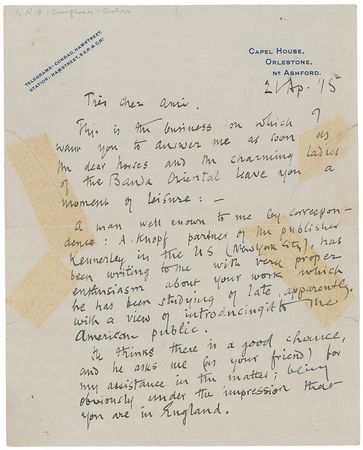 to R. B. Cunninghame Graham
TELEGRAMS:- CONRAD, HAMSTREET.
STATION:- HAMSTREET, S.E.R. & C.R.
CAPEL HOUSE,
ORLESTONE,
NR ASHFORD.
21 Ap. '15
Très cher ami.
This is the business on which I
want you to answer me as soon as
the dear horses and the charming ladies
of the Banda Oriental leave you a
moment of leisure : —
A man well known to me by correspon-
dence : A. Knopf partner of the publisher
Kennerley in the US (New York City), has
been writing to me with very proper
enthusiasm about your work which
he has been studying of late apparently,
with a view of introducing it to the
American public.
He thinks there is a good chance,
and he asks me (as your friend) for
my assistance in the matter ; being
obviously under the impression that
you are in England.